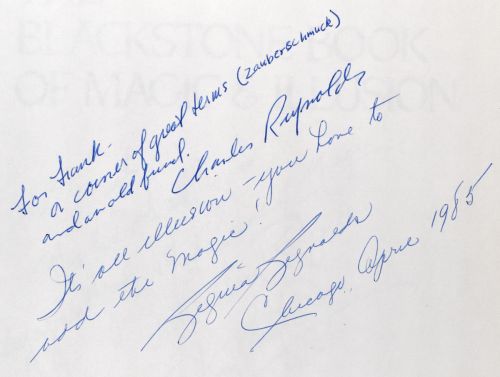 For Frank-
a coiner of great terms (zauberschmuck)
and an old friend.
Charles Reynolds
It's all illusion - you have to
add the magic!
Regina Reynolds
Chicago, April 1985
BLACKSTONE BOOK
OF MAGIC & ILLUSION